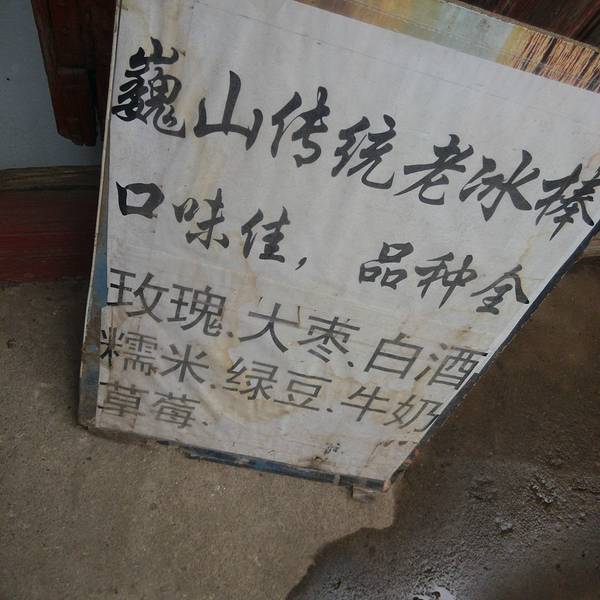 巍山传统老冰棒
口味佳，品种全
玫瑰.大枣.白酒
糯米.绿豆.牛奶
草莓.